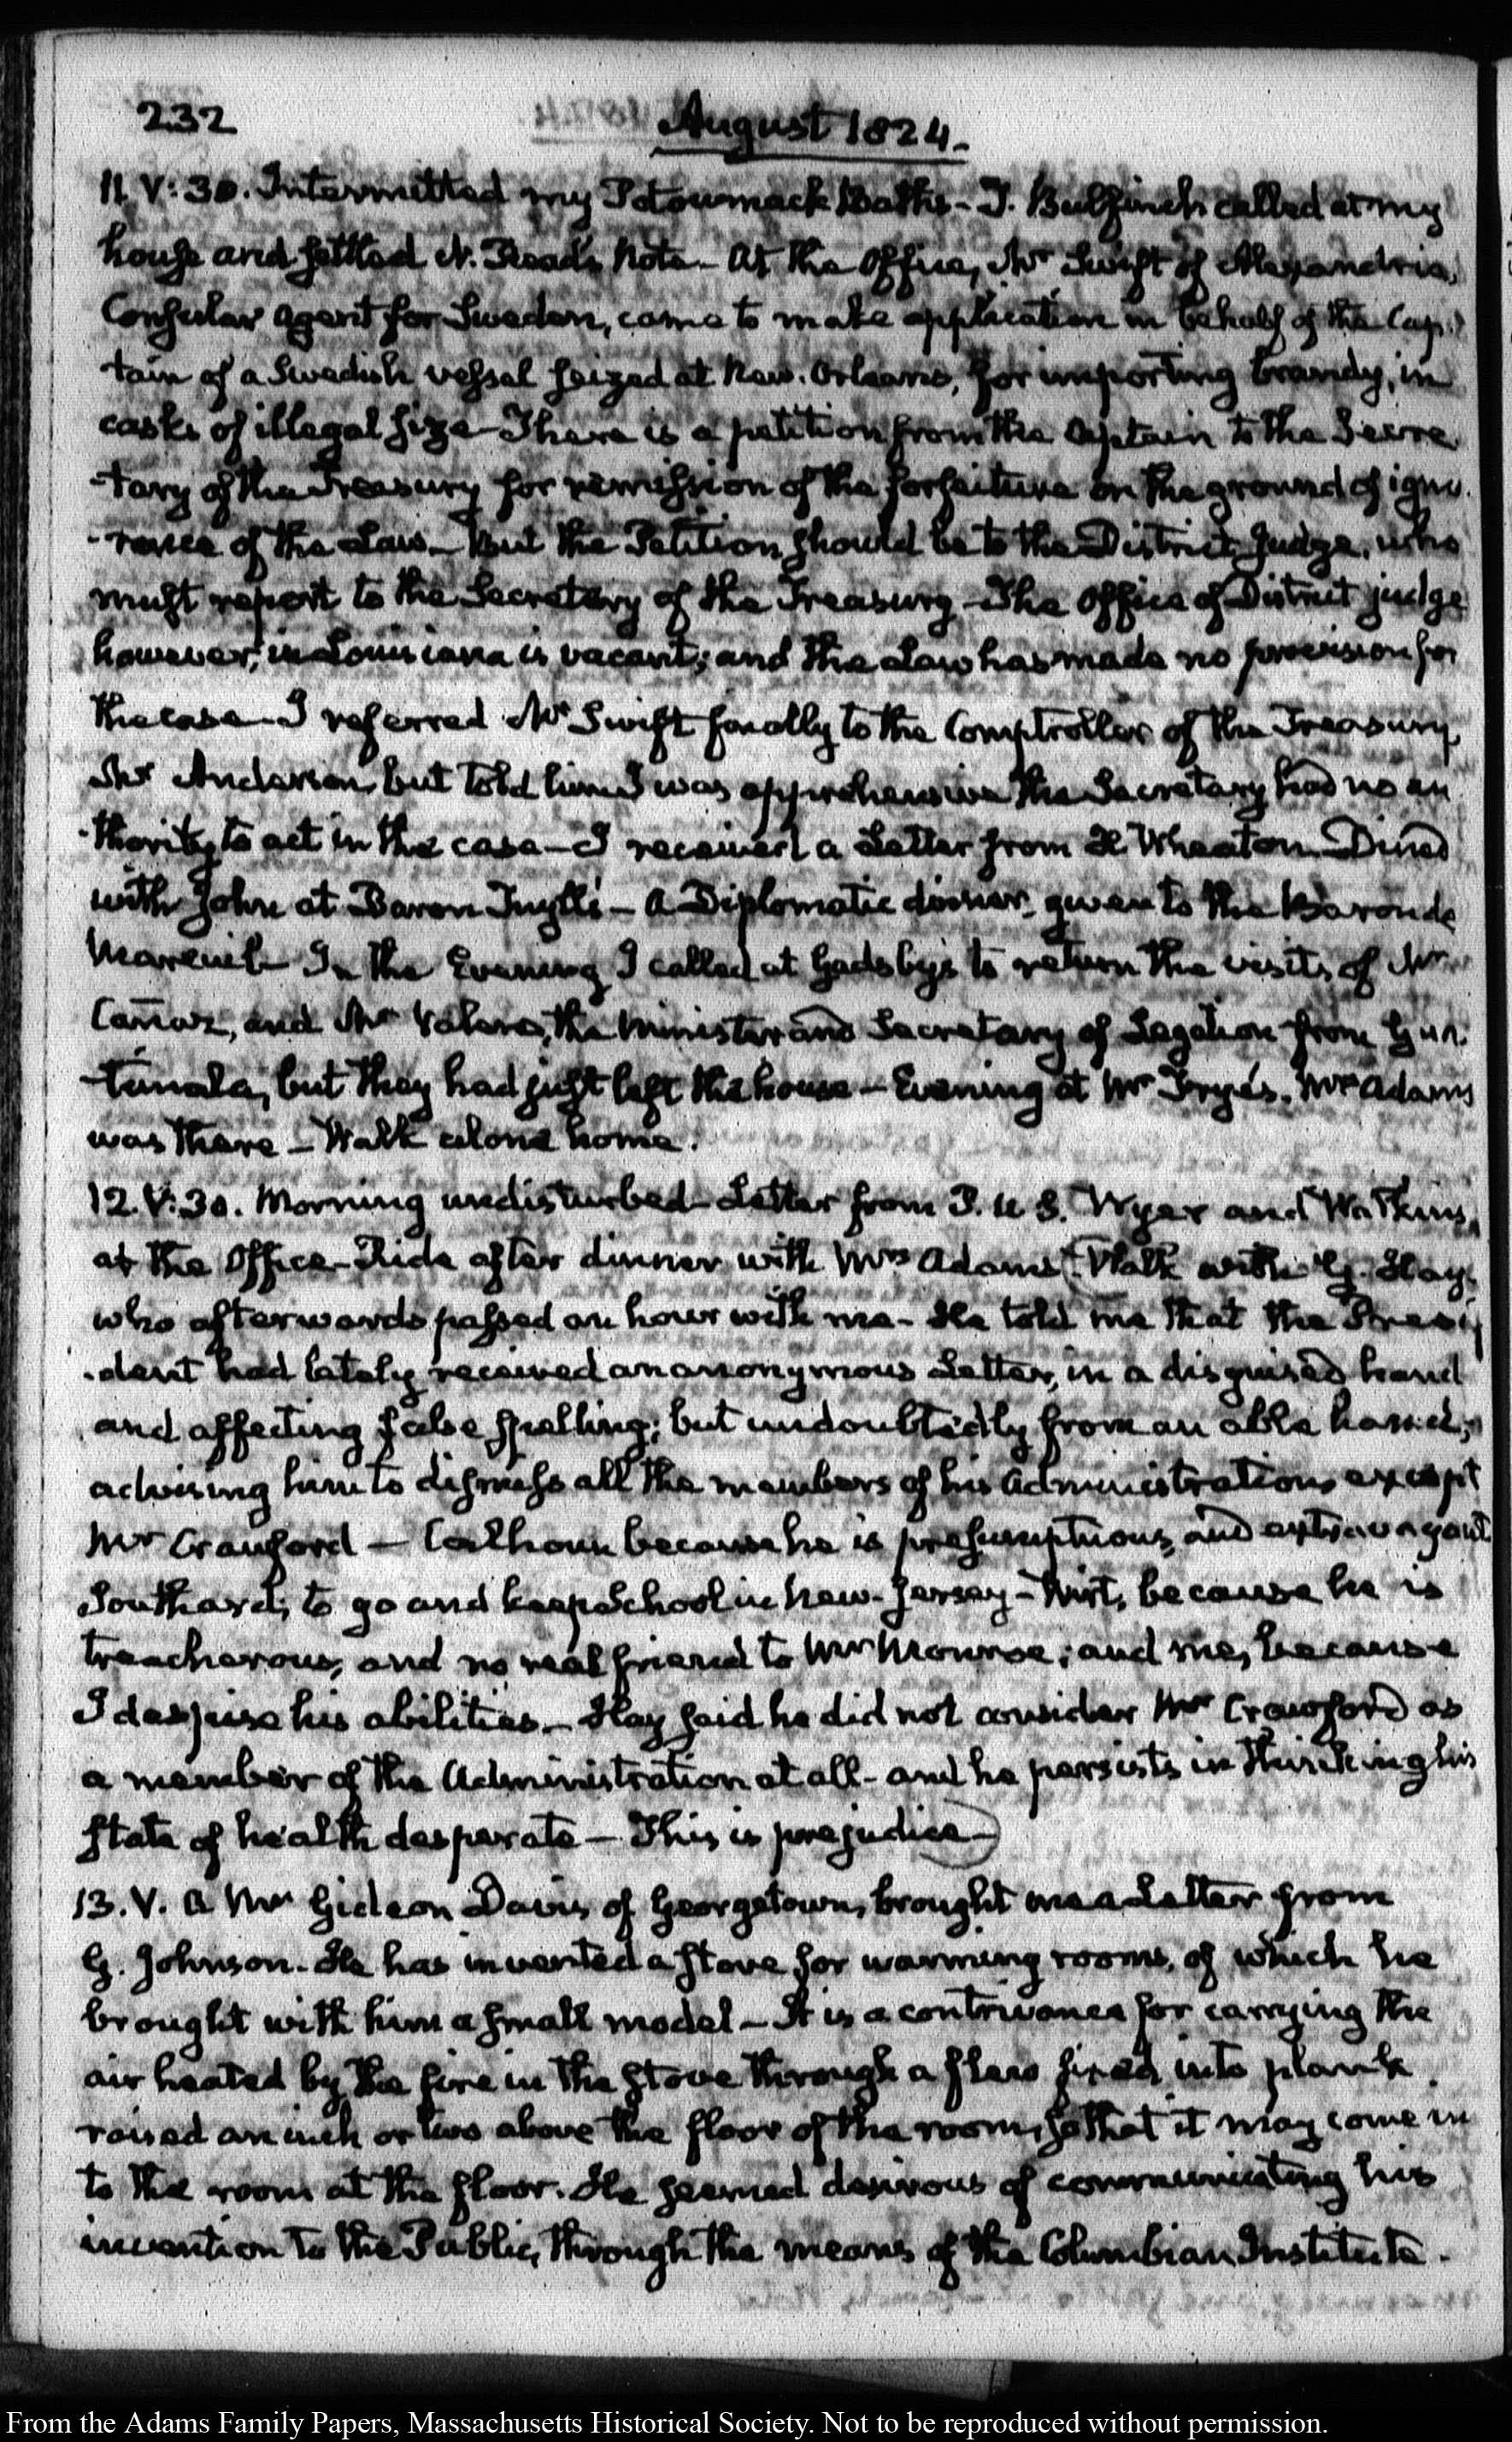 232
August 1824.
11. V:30. Intermitted my Potowmack Baths - T. Bulfinch called at my
house and settled N. Read's Note - At the Office, Mr Swift of Alexandria,
Consular Agent for Sweden, came to make application in behalf of the Cap-
tain of a Swedish vessel seized at New-Orleans, for importing brandy, in
casks of illegal size - There is a petition from the Captain to the Secre
-tary of the Treasury for remission of the forfeiture on the ground of igno-
-rance of the Law - But the Petition should be to the District Judge, who
must report to the Secretary of the Treasury - The Office of District judge
however, in Louisiana is vacant; and the Law has made no provision for
the case - I referred Mr Swift finally to the Comptroller of the Treasury,
Mr Anderson, but told him I was apprehensive the Secretary had no au
-thority to act in the case - I received a Letter from H Wheaton. Dined
with John at Baron Tuyll's - A Diplomatic dinner, given to the Baron de
Mareuil - In the Evening I called at Gadsby's to return the visits of Mr
Cañaz, and Mr Valero, the Minister and Secretary of Legation from Gua-
-timala, but they had just left the house - Evening at Mr Frye's. Mrs Adams
was there - Walk alone home.
12. V:30. Morning undisturbed - Letter from P. U S. Wyer and Watkins,
at the Office - Ride after dinner with Mrs Adams - Walk with G. Hay,
who afterwards passed an hour with me - He told me that the Presi
-dent had lately received an anonymous Letter, in a disguised hand
and affecting false spelling; but undoubtedly from an able hand;
advising him to dismiss all the members of his Administration, except
Mr Crawford - Calhoun because he is presumptuous, and extravagant
Southard; to go and keep School in New-Jersey - Wirt, because he is
treacherous, and no real friend to Mr Monroe; and me, because
I despise his abilities - Hay said he did not consider Mr Crawford as
a member of the Administration at all - and he persists in thinking his
state of health desperate - This is prejudice -
13. V. A Mr Gideon Davis of Georgetown, brought me a Letter from
G. Johnson. He has invented a stove for warming rooms, of which he
brought with him a small model - It is a contrivance for carrying the
air heated by the fire in the stove through a flew fixed into plank
raised an inch or two above the floor of the room, so that it may come in
to the room at the floor. He seemed desirous of communicating his
invention to the Public, through the means of the Columbian Institute.
From the Adams Family Papers, Massachusetts Historical Society. Not to be reproduced without permission.